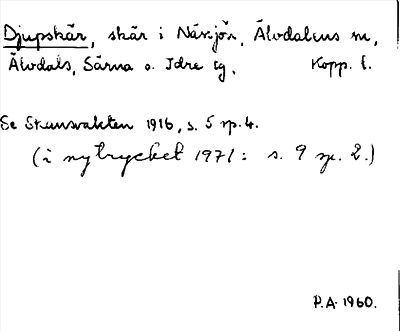 Djupskär, skär i Näxjön, Älvdalens m,
Älvdals, Särna o. Idre tg, Kopp. l.
Se Skansvakten 1916, s. 5 sp. 4.
(i nytrycket 1971: s. 9 sp. 2.)
P.A. 1960.